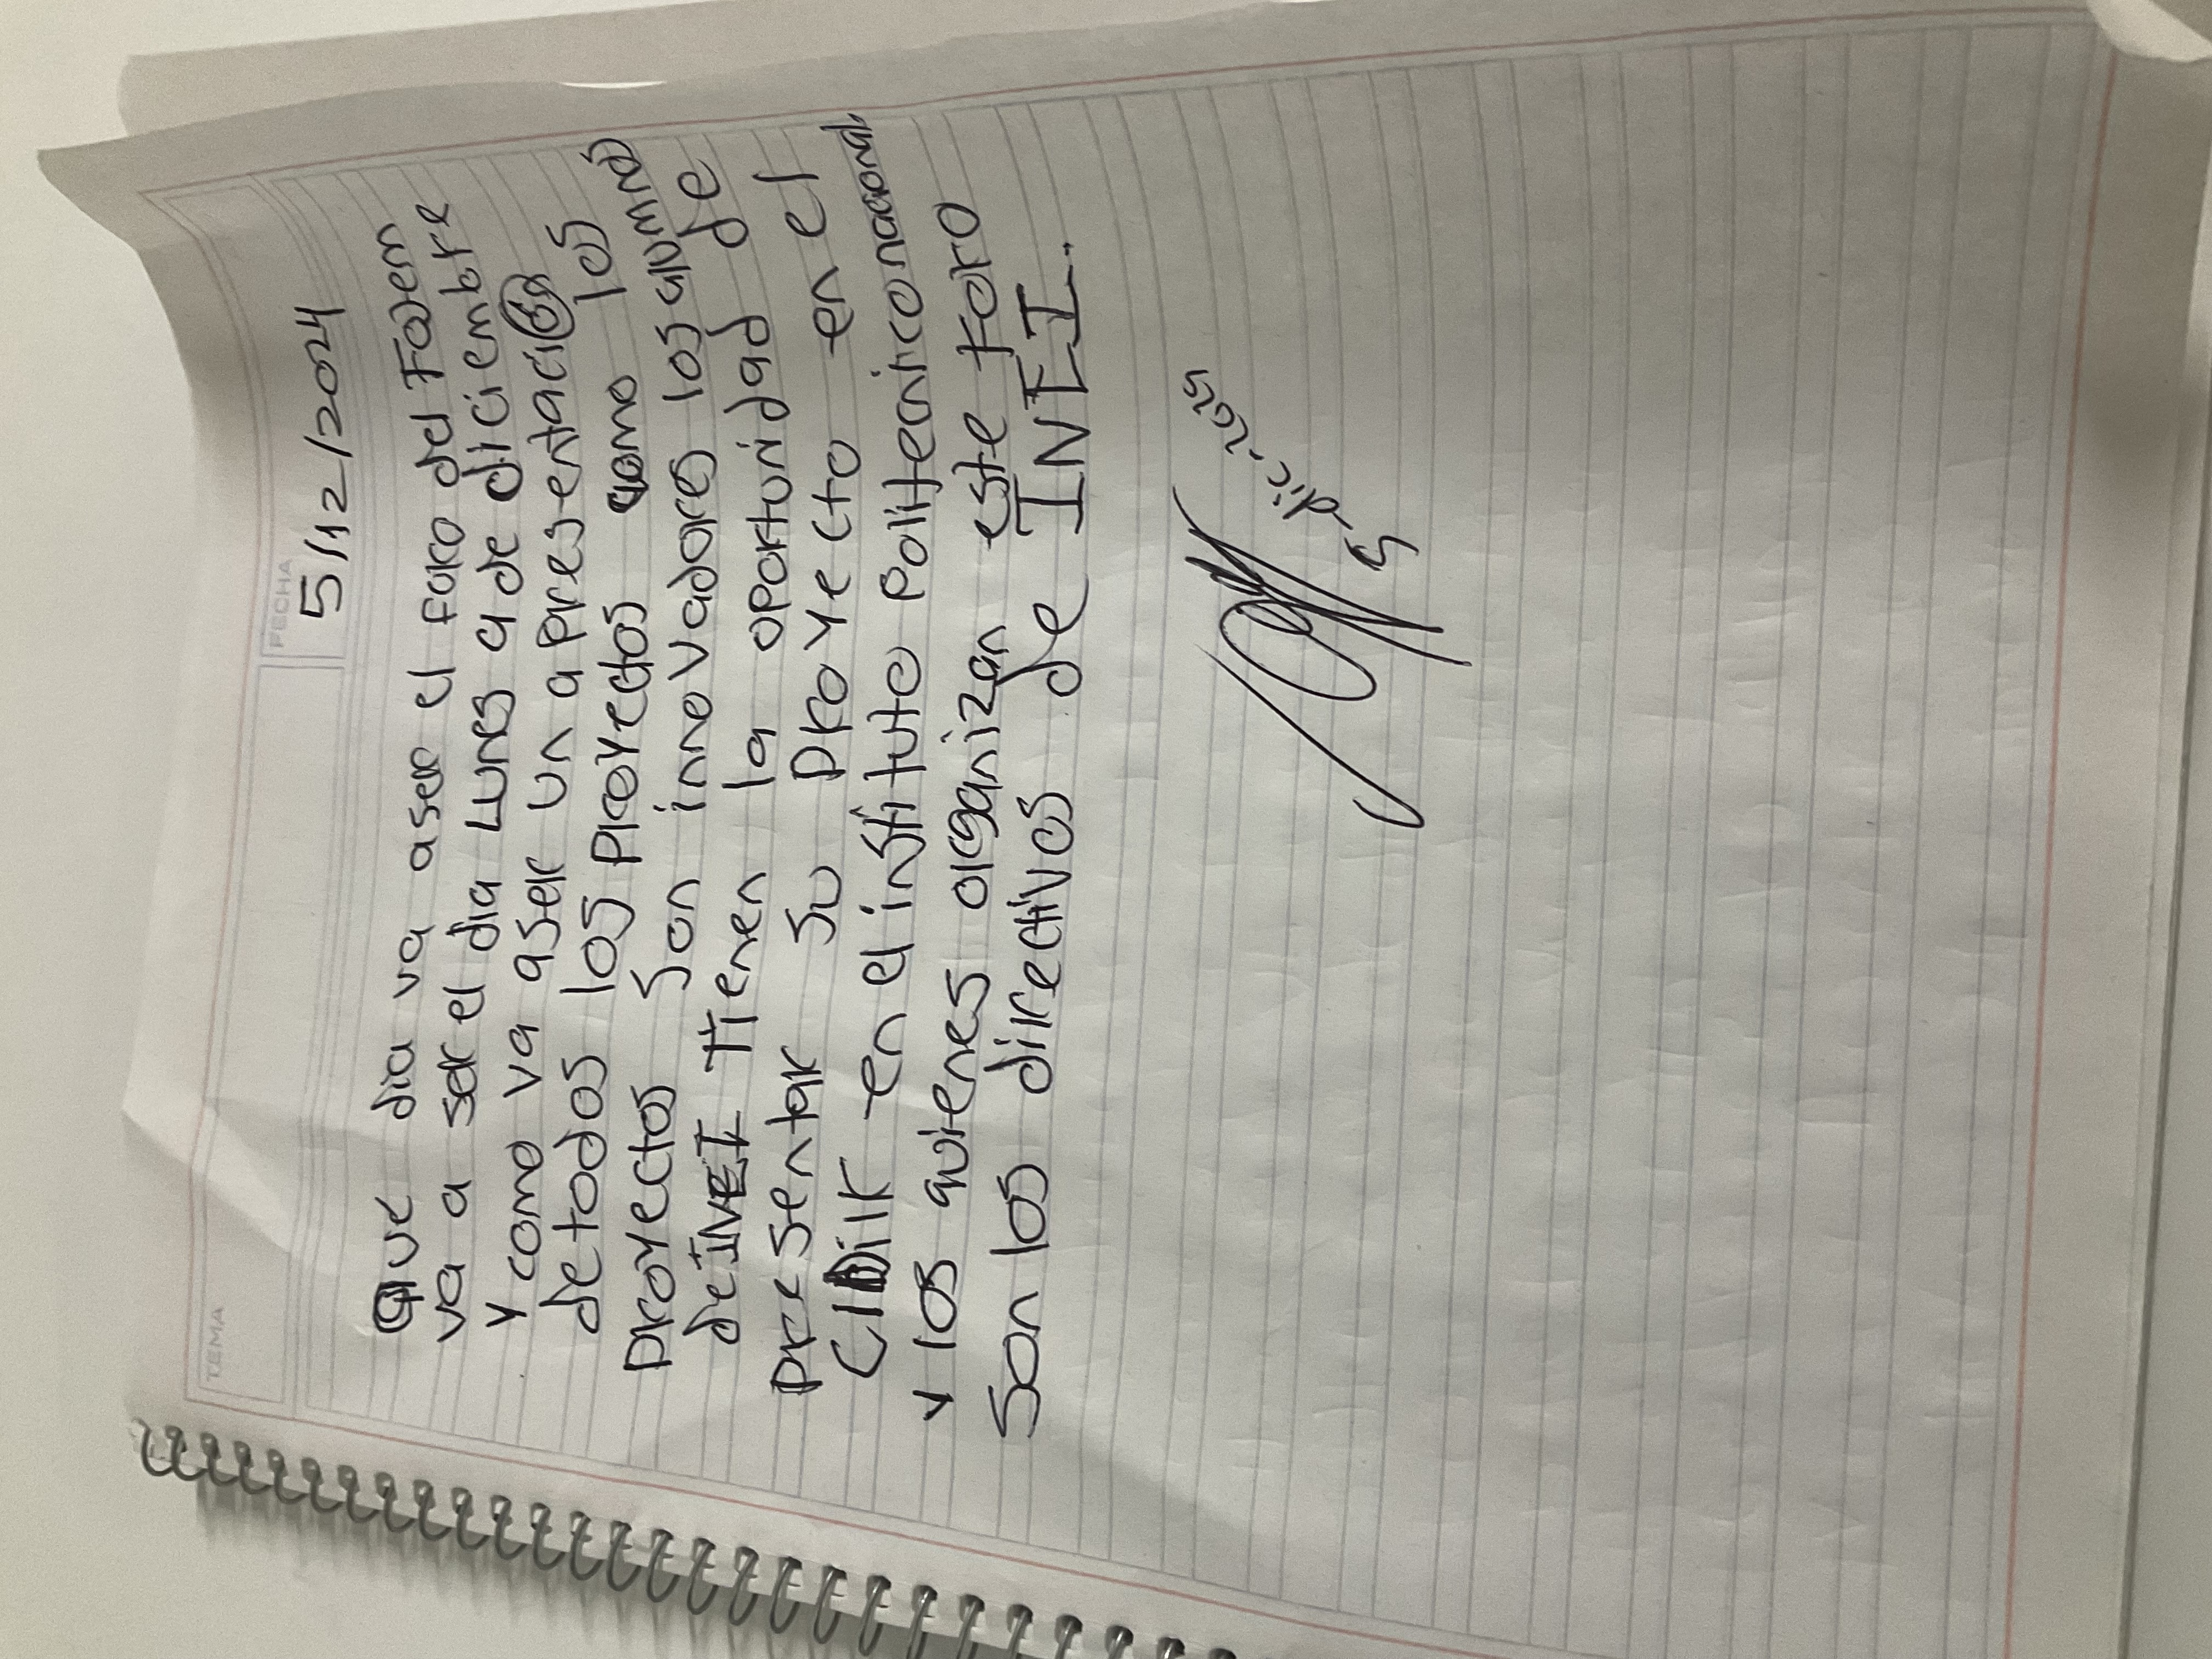 TEMA
FECHA
5/12/2024
Que dia va aser el foro del Fovem
va a ser el dia Lunes 9 de diciembre
y como va aser un a presentación
de todos los proyectos como los
proyectos son innovadores los alumnos
de INEI tienen la oportunidad de
presentar su proyecto en el
CIDiik en el instituto politecnico nacional.
y los quienes organizan este foro
son los directivos de INEI.
5 dic. 2024